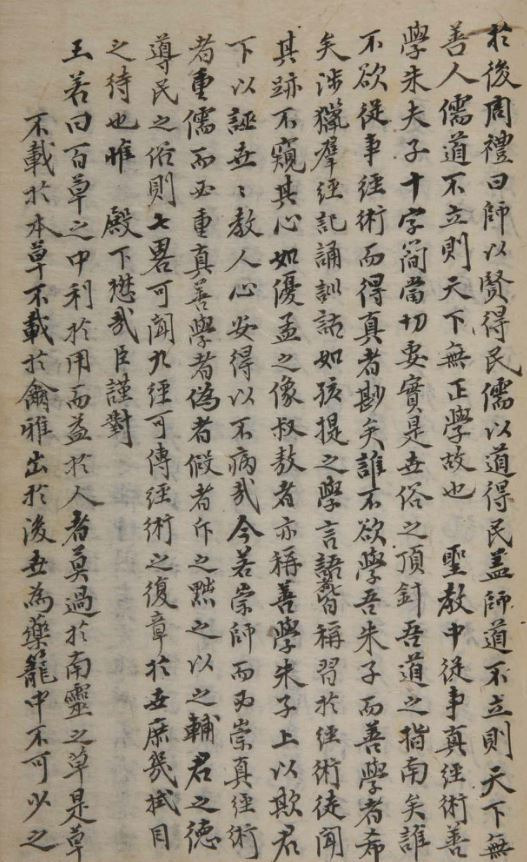 於後周禮曰師以賢得民儒以道得民盖師道不立則天下無
善人儒道不立則天下無正學故也 聖教中從事真經術善
學朱夫子十字簡當切要實是世俗之頂針吾道之指南矣誰
不欲從事經術而得真者尠矣誰不欲學吾朱子而善學者希
矣涉獵羣經記誦訓詁如孩提之學言語皆稱習於經術徒聞
其跡不窺其心如優孟之像叔敖者亦稱善學朱子上以欺君
下以誣世〻教人心安得以不病㢤今若崇師而必崇真經術
者重儒而必重真善學者偽者假者斥之黜之以之輔君之德
導民之俗則七畧可闻九經可傳經術之復章於世庶幾拭目
之待也惟 殿下懋㢤臣謹對
王若曰百草之中利於用而益於人者莫過於南靈之草是草
不載於本草不載於爾雅出於後世為藥籠中不可少之